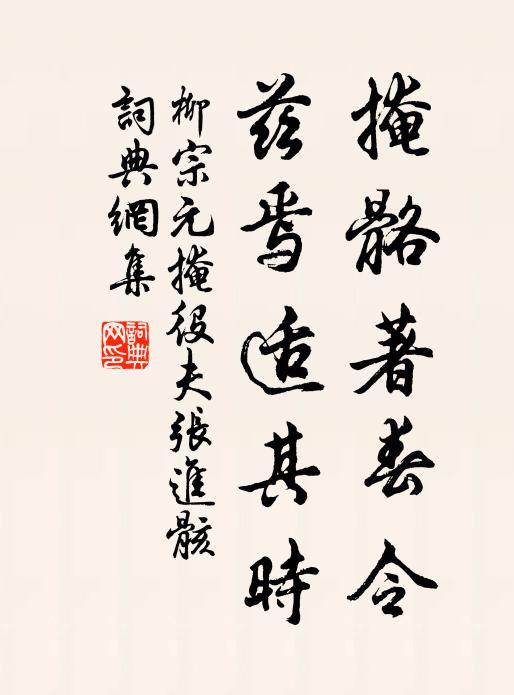 掩骼著春令
茲焉适其時
柳宗元掩役夫張進骸
詞典網集
詞典网印